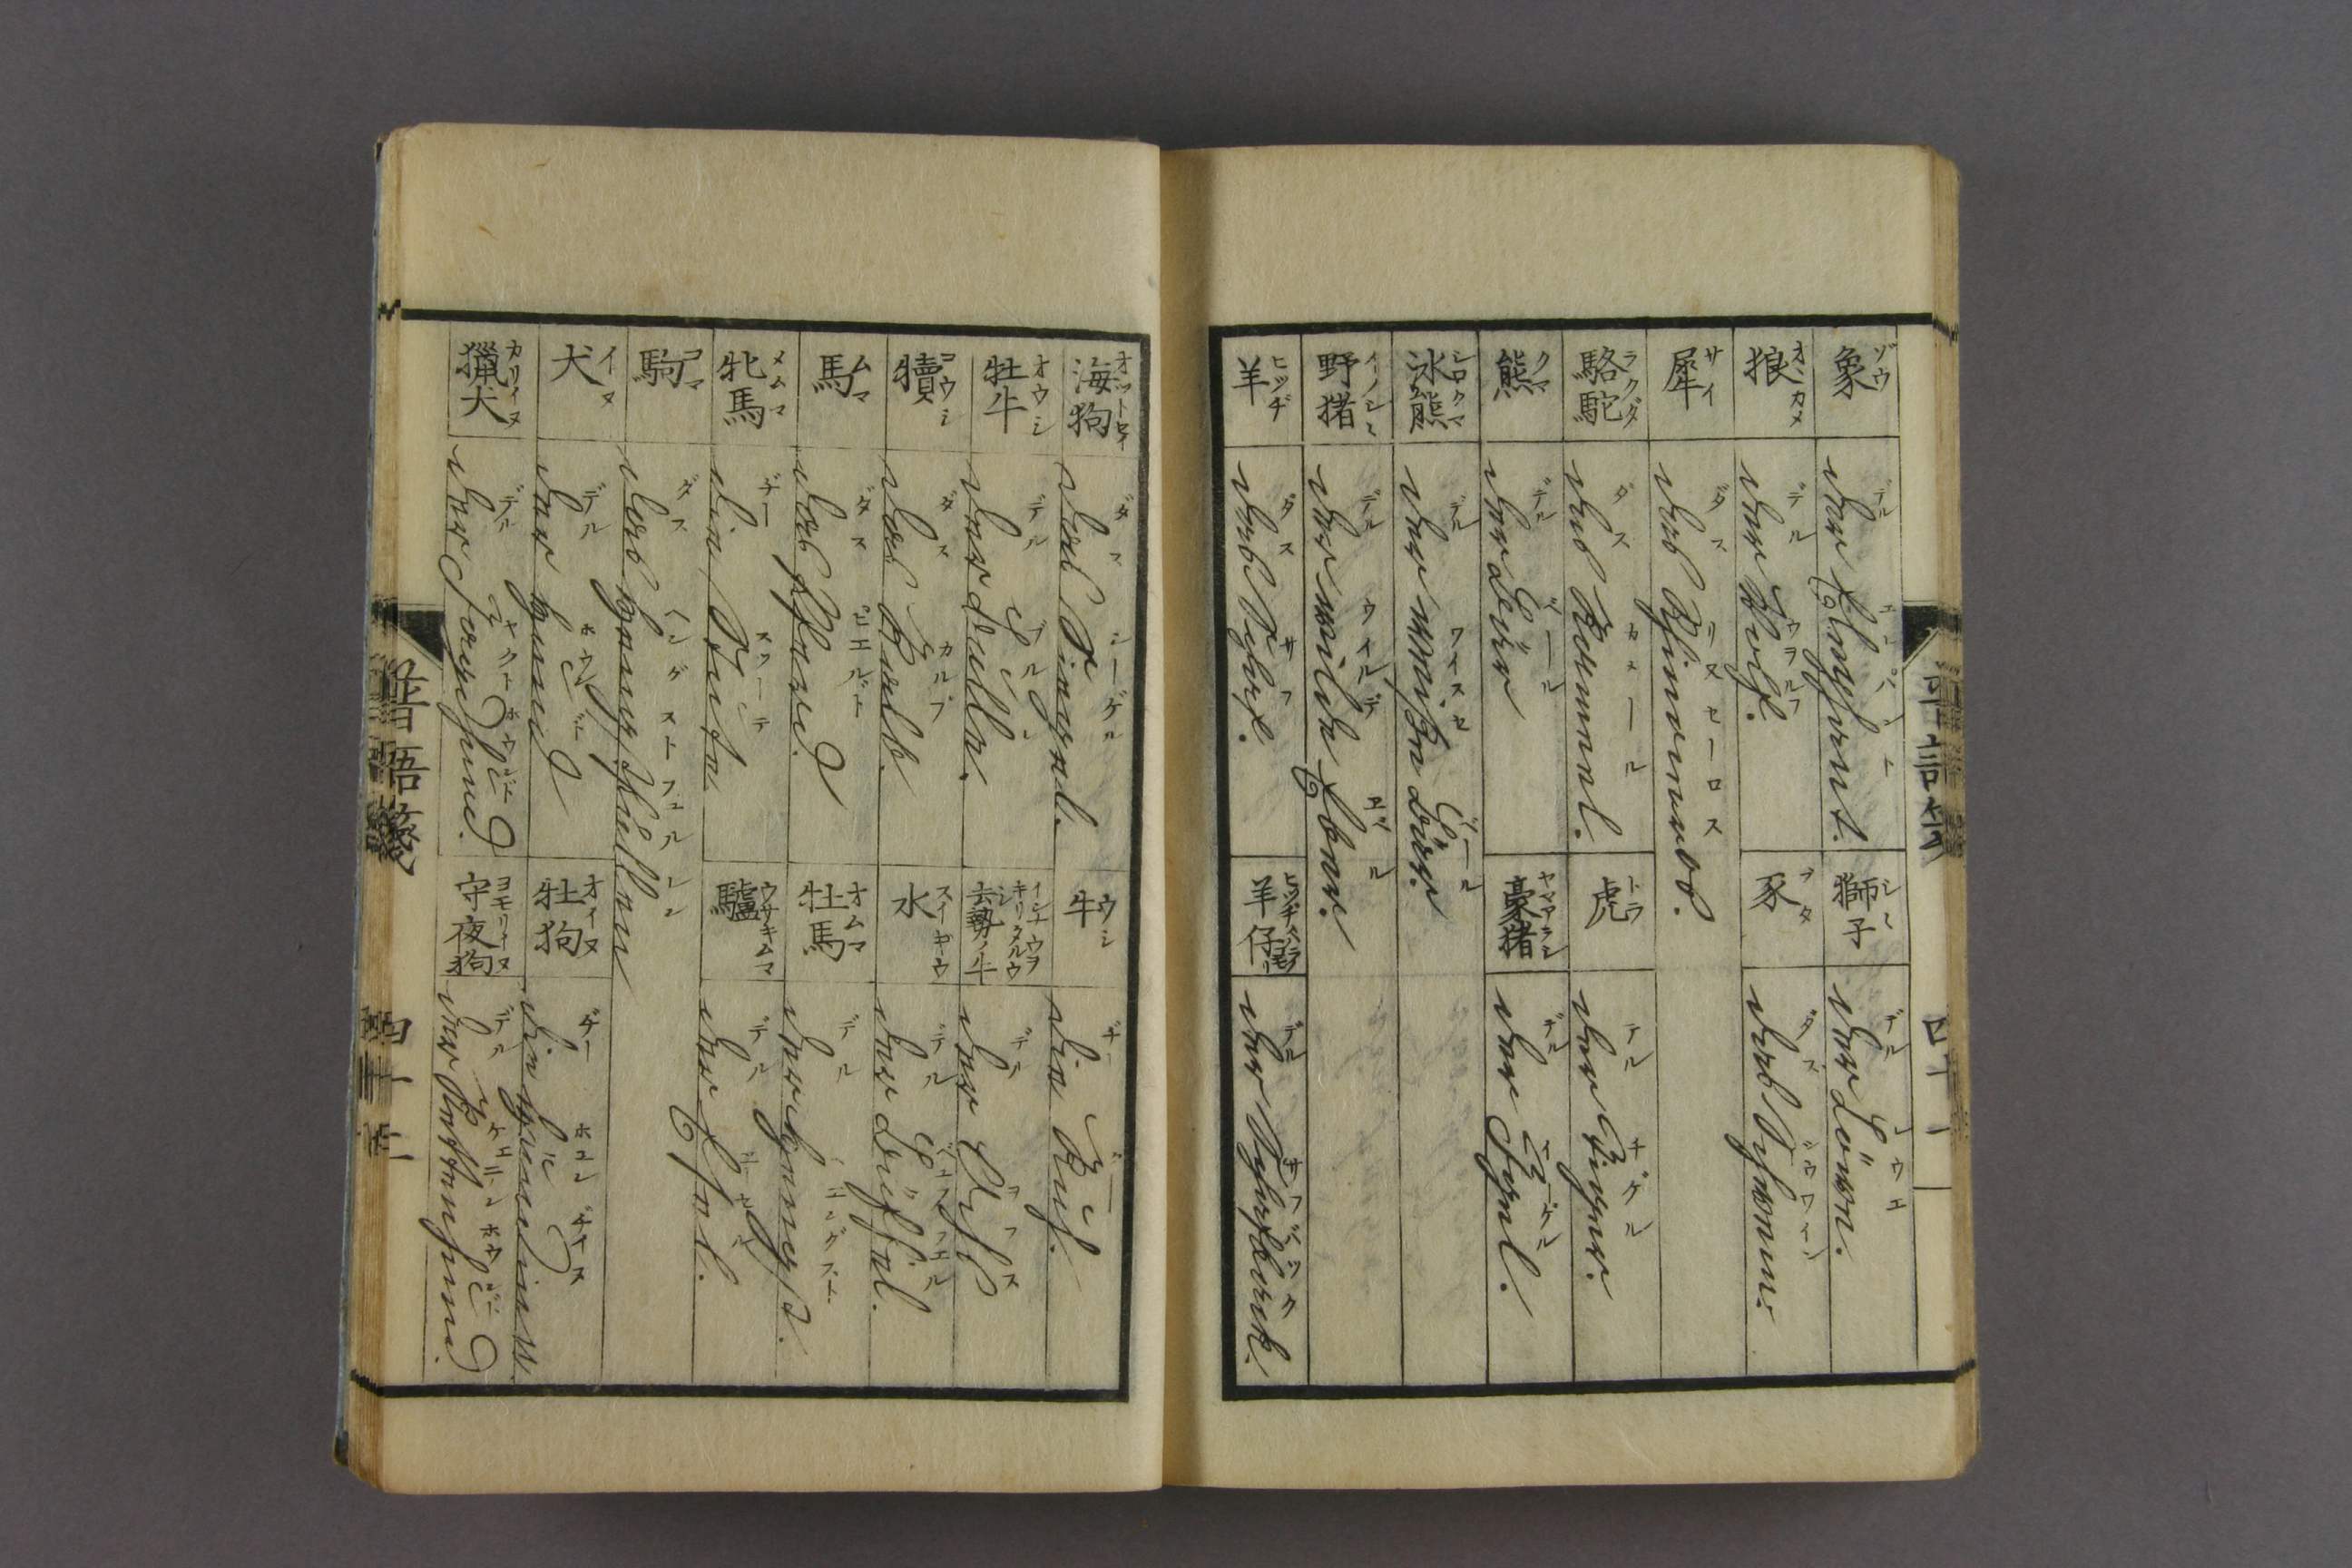 ゾウ
象
デル エレパント
der Elephant.
シヽ
獅子
デル レウエ
der Löwe.
オホカメ
狼
デル ウヲルフ
der Wolf.
ブタ
豕
ダス シウワイン
das Schwein.
サイ
犀
ダス リヌセーロス
das Rhinoceros.
ラクダ
駱駝
ダス カメール
das Kameel.
トラ
虎
デル チゲル
der Tiger.
クマ
熊
デル ベール
der Bär
ヤマアラシ
豪猪
デル イーゲル
der Igel.
シロクマ
氷熊
デル ワイスセ ベール
der weiße Bär.
イノシヽ
野猪
デル ウイルデ エベル
der wilde Eber.
ヒツヂ
羊
ダス サフ
das Schaf.
羊仔
デル サフボック
der Schafbock.
オットセイ
海狗
ダス シーゲル
das Siegel.
ウシ
牛
ヂー クー
die Kuh.
オウシ
牡牛
デル ブルレ
der Bulle.
去勢ノ牛
デル ヲフス
der Ochs
コウシ
犢
ダス カルブ
das Kalb.
スイギウ
水
デル ビユフフエル
der Büffel.
ムマ
馬
ダス ピエルド
das Pferd.
オムマ
牡馬
デル ヘングスト
der Hengst.
メムマ
牝馬
ヂー スツーテ
die Stute
ウサキムマ
驢
デル エーセル
der Esel.
コマ
駒
ダス ヘングストフュルレン
das Hengstfüllen
イヌ
犬
デル ホウンド
der Hund
オイヌ
牡狗
ヂー ホュンヂイン
die Hündinn
カリイヌ
猟犬
デル ヤクトホウンド
der Jagdhund.
ヨモリイヌ
守夜狗
デル ケエテンホウンド
der Kettenhund.
四十一